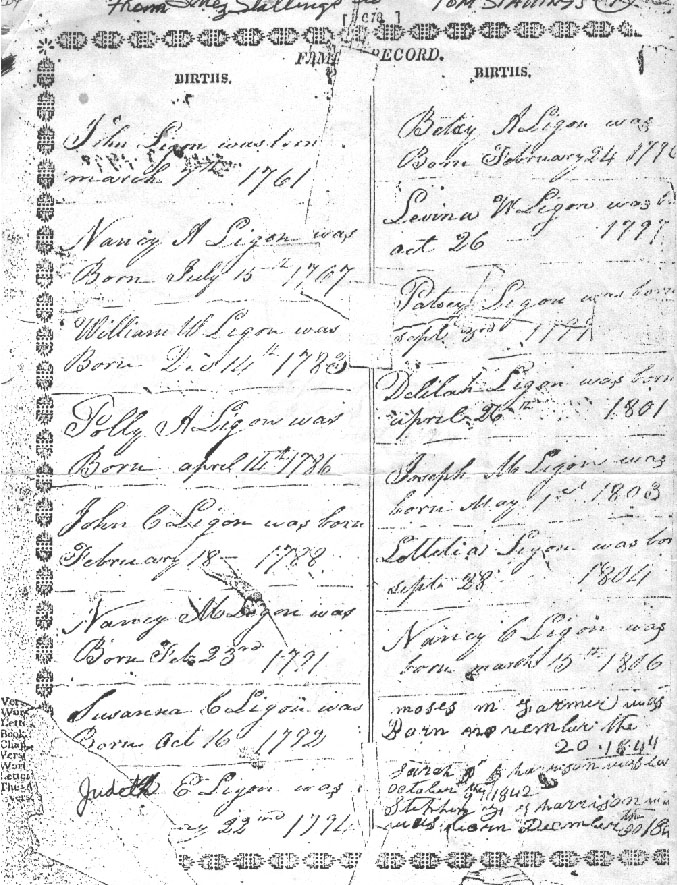 Tom Stallings
FAMILY RECORD.
BIRTHS.
John Ligon was born
march 7th 1761
Nancy A Ligon was
Born July 15th 1767
William W Ligon was
Born Dec 14th 1783
Polly A Ligon was
Born april 14th 1786
John C Ligon was born
February 18 - 1788
Nancy M Ligon was
Born Feb 23rd 1791
Susanna C Ligon was
Born Oct 16 1792
Judeth E Ligon was
22nd 179
BIRTHS.
Betsy A Ligon was
Born February 24 1796
Levina W Ligon was
oct 26 1797
Patsey Ligon was born
sept 3rd 1799
Delilah Ligon was born
april 26th 1801
Joseph M Ligon was
born May 1st 1803
Ligon was bor
sept 28 1804
Nancy C Ligon was
born march 15th 1806
moses m farmer was
Born november the
20 . 1844
Sarah harrison was
october the 9 1842
harrison
was born December the